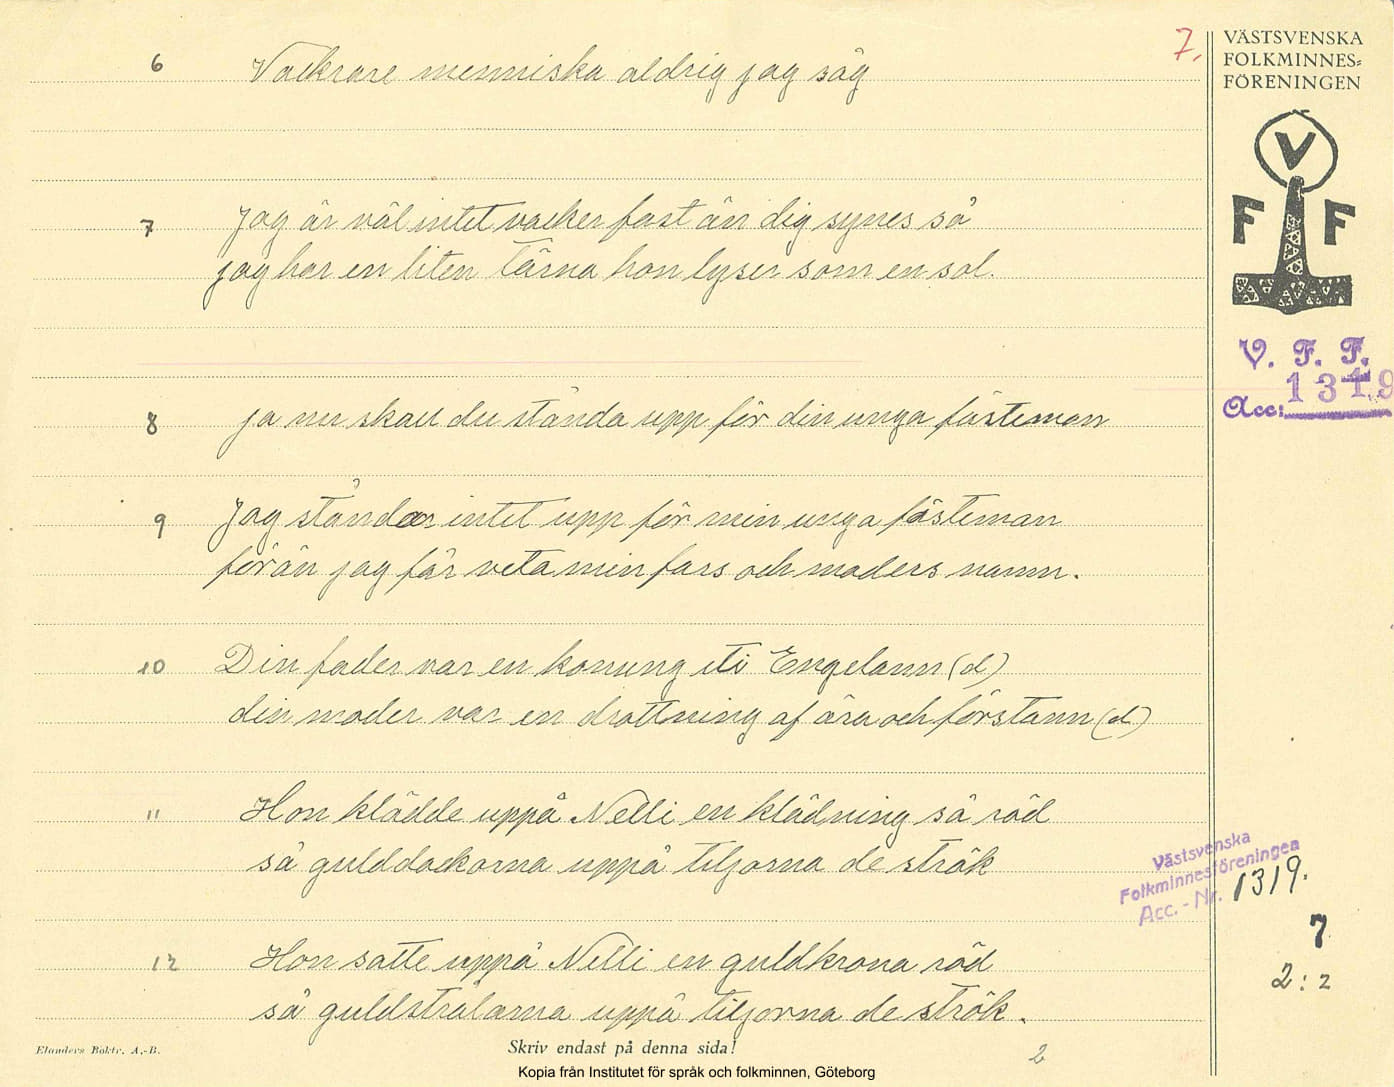 7.
VÄSTSVENSKA
FOLKMINNES=
FÖRENINGEN
V
F F
V. F. F.
Acc: 1319
6 Vackrare menniska aldrig jag såg
7 Jag är väl intet vacker fast än dig synes så
jag har en liten tärna hon lyser som en sol.
8 ja nu skall du stånda upp för din unga fästeman
9 Jag ståndar intet upp för min unga fästeman
förän jag får veta min fars och moders namn.
10 Din fader var en konung uti Engelann (d)
din moder var en drottning af ära och förstann (d)
11 Hon klädde uppå Nelli en klädning så röd
så gulddockorna uppå tiljorna de strök
12 Hon satte uppå Nelli en guldkrona röd
så guldstrålarna uppå tiljorna de strök.
Västsvenska
Folkminnesföreningen
Acc. - Nr. 1319.
7
2 : 2
Elanders Boktr. A.-B.
Skriv endast på denna sida!
2
Kopia från Institutet för språk och folkminnen, Göteborg